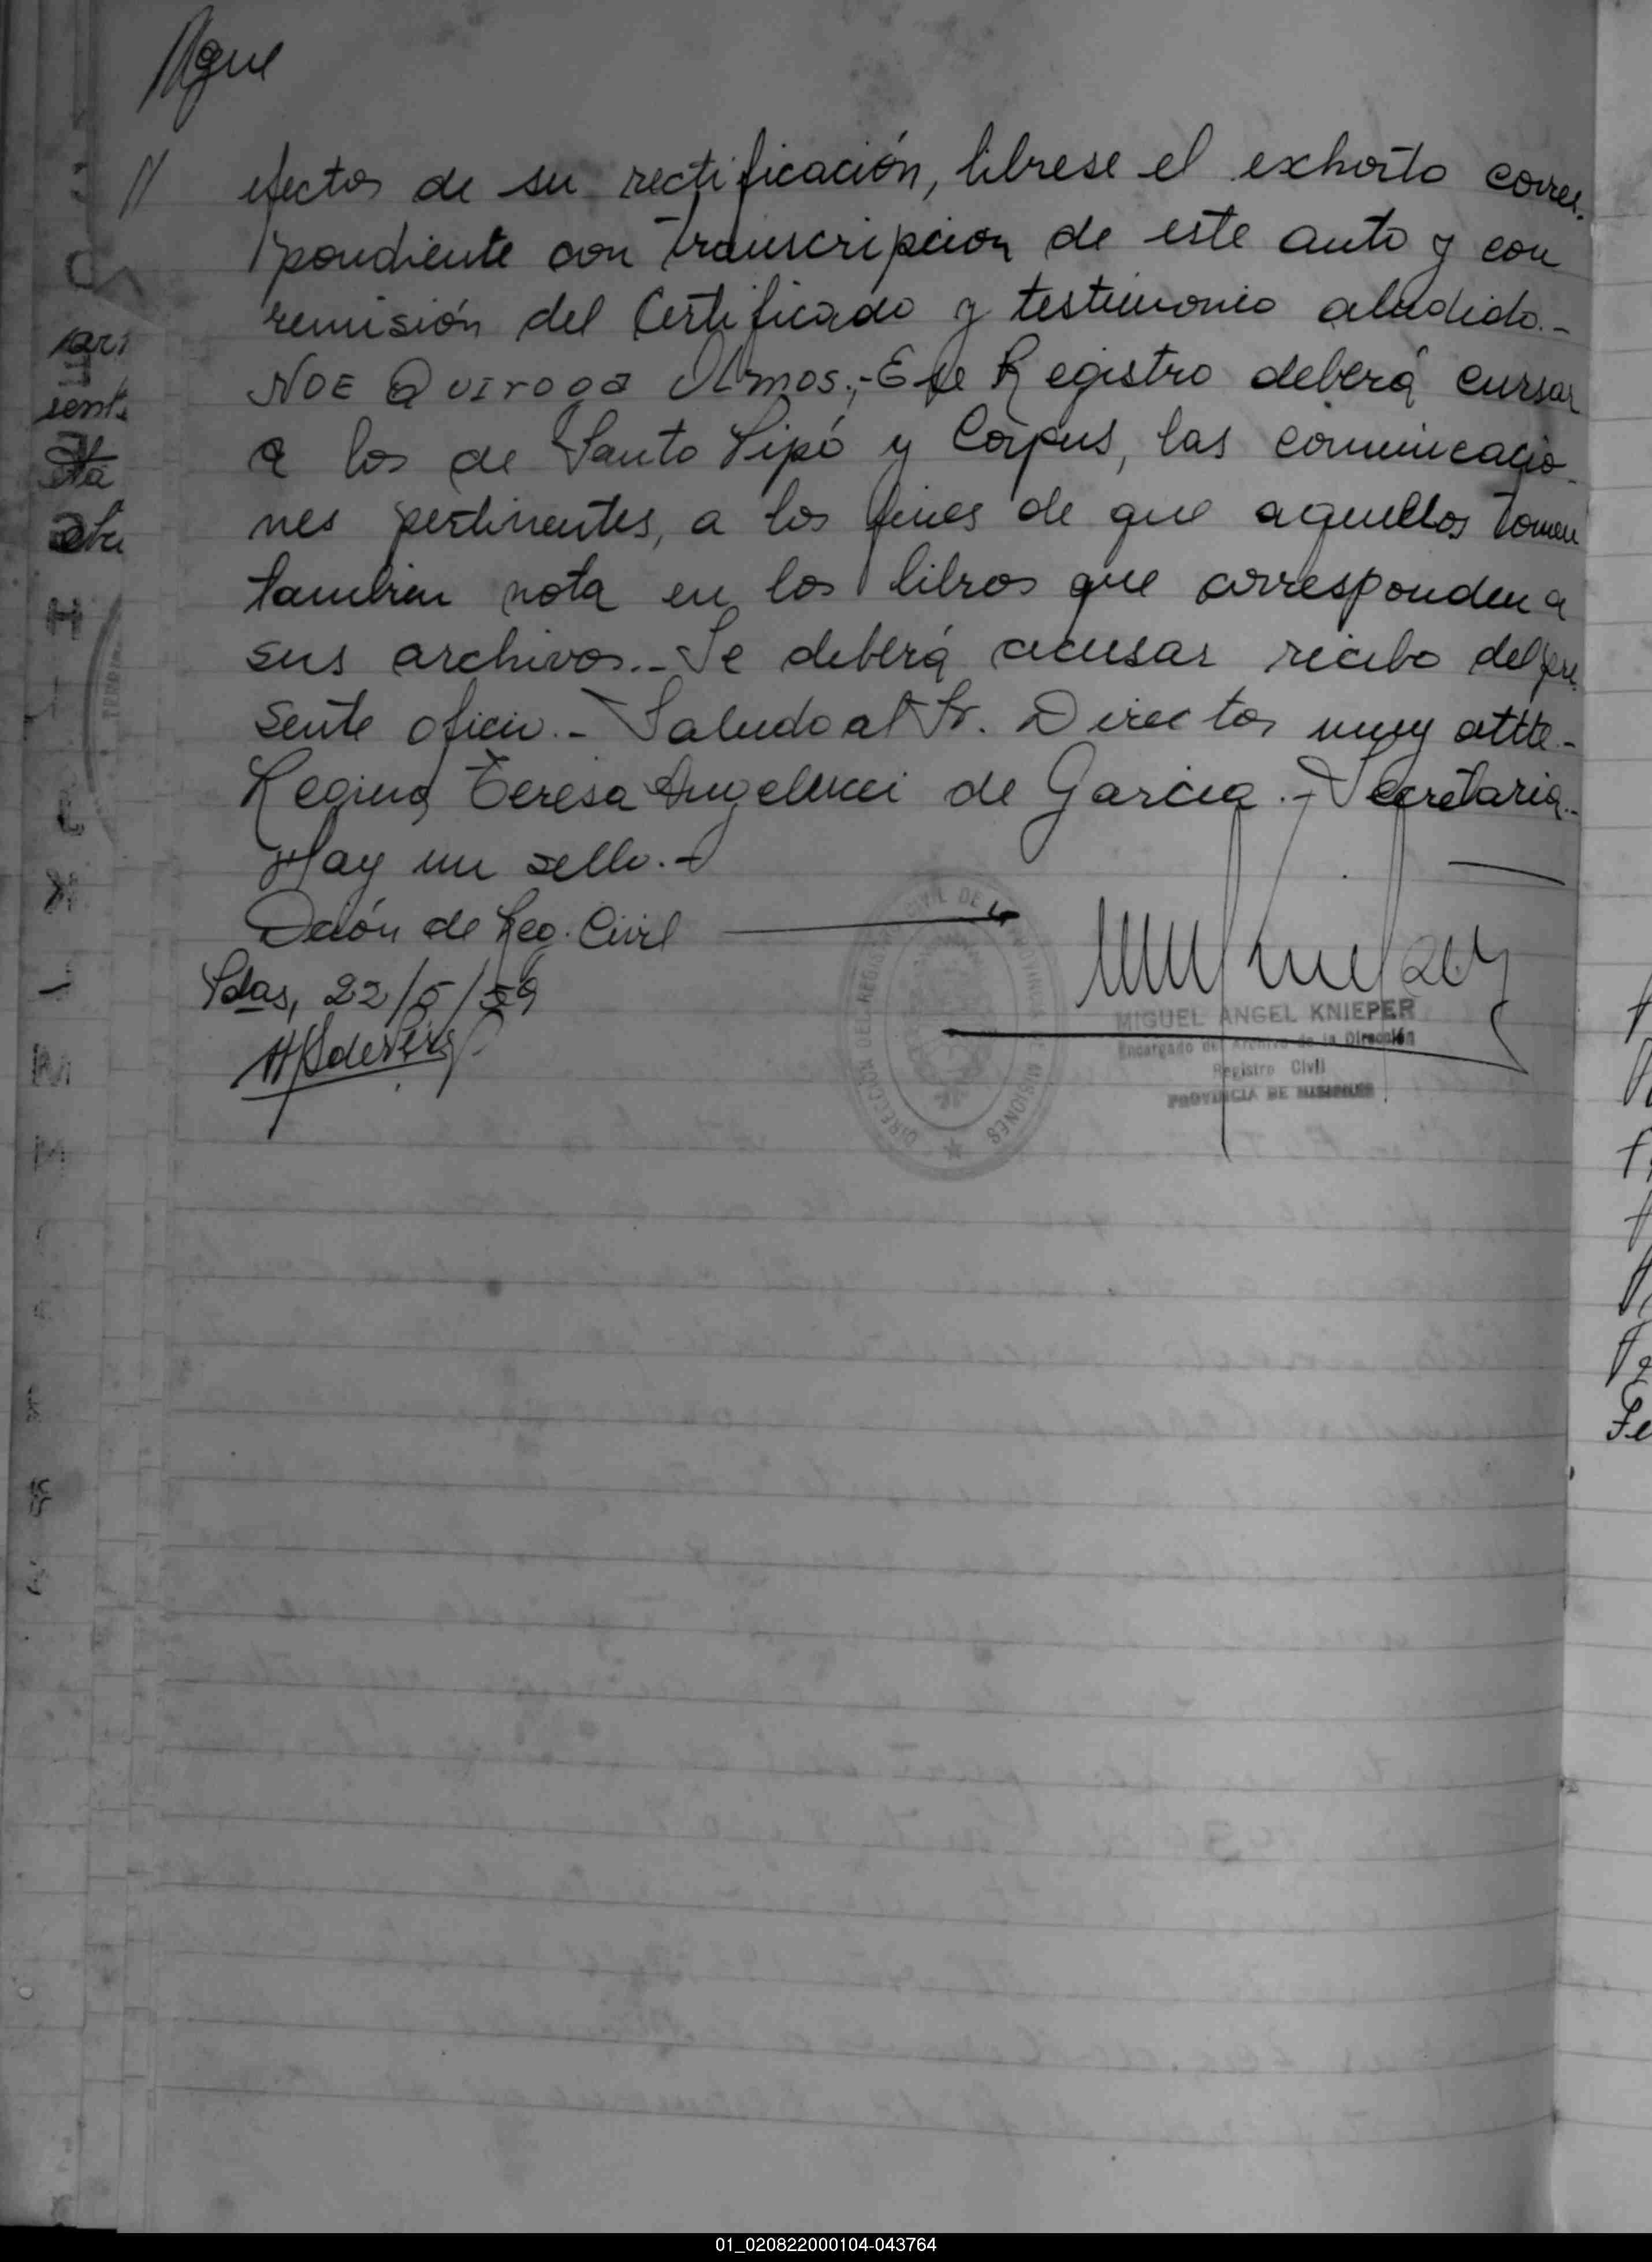 Sigue
// efectos de su rectificación, librese el exhorto corres-
pondiente con transcripcion de este auto y con
remisión del Certificado y testimonio aludido.-
NOE QUIROGA OLMOS.-Ese Registro deberá cursar
a los de Santo Pipó y Corpus, las comunicacio-
nes pertinentes, a los fines de que aquellos tomen
tambien nota en los libros que corresponden a
sus archivos.- Se deberá acusar recibo del pre-
sente oficio.- Saludo al Sr. Director muy attte.-
Regina Teresa Angelucci de Garcia.- Secretaria.-
Hay un sello.-
Dción de Reg. Civil
Pdas, 22/5/59
DIRECCION DEL REGISTRO CIVIL DE LA PROVINCIA DE MISIONES
MIGUEL ANGEL KNIEPER
Encargado del Archivo de la Dirección
Registro Civil
PROVINCIA DE MISIONES
01_020822000104-043764